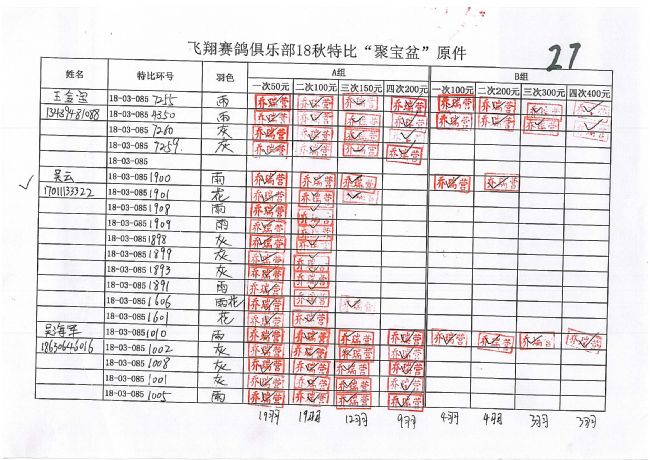 飞翔赛鸽俱乐部18秋特比“聚宝盆”原件 27
姓名 特比环号 羽色 A组 B组
一次50元 二次100元 三次150元 四次200元 一次100元 二次200元 三次300元 四次400元
18-03-0857255 雨 乔瑞营 乔瑞营 乔瑞营 乔瑞营 乔瑞营 乔瑞营 乔瑞营
13439481088 18-03-0854350 雨 乔瑞营 乔瑞营 乔瑞营 乔瑞营 乔瑞营 乔瑞营 乔瑞营
18-03-0857260 灰 乔瑞营 乔瑞营 乔瑞营
18-03-0857259 灰 乔瑞营 乔瑞营 乔瑞营 乔瑞营
18-03-085
吴云 18-03-0851900 雨 乔瑞营 乔瑞营 乔瑞营 乔瑞营 乔瑞营
17011133322 18-03-0851901 花 乔瑞营 乔瑞营
18-03-0851908 雨 乔瑞营
18-03-0851909 雨 乔瑞营
18-03-0851898 灰 乔瑞营
18-03-0851899 灰 乔瑞营
18-03-0851893 灰 乔瑞营
18-03-0851891 雨 乔瑞营
18-03-0851606 雨花 乔瑞营 乔瑞营
18-03-0851601 花 乔瑞营 乔瑞营
吴海军 18-03-0851010 雨 乔瑞营 乔瑞营 乔瑞营 乔瑞营 乔瑞营 乔瑞营 乔瑞营 乔瑞营
18-03-0851002 灰 乔瑞营 乔瑞营 乔瑞营 乔瑞营
18-03-0851008 灰 乔瑞营 乔瑞营 乔瑞营 乔瑞营
18-03-0851001 灰 乔瑞营 乔瑞营 乔瑞营 乔瑞营
18-03-0851005 雨 乔瑞营 乔瑞营 乔瑞营 乔瑞营
19羽 19羽 12羽 9羽 4羽 4羽 3羽 3羽